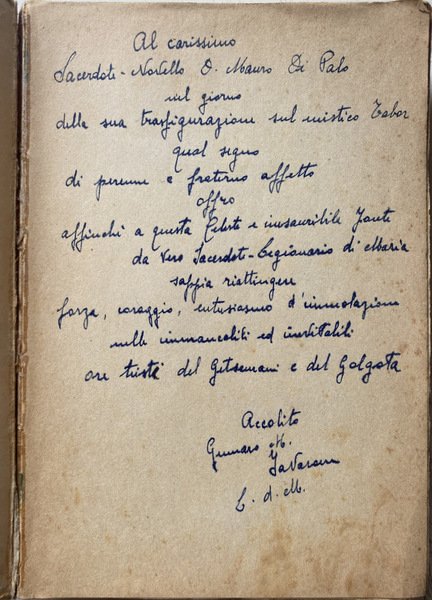 Al carissimo
Sacerdote-Novello D. Mauro Di Palo
nel giorno
della sua trasfigurazione sul mistico Tabor
qual segno
di perenne e fraterno affetto
offro
affinchè a questa Celeste e inesauribile Fonte
da Vero Sacerdote-Legionario di Maria
sappia riattingere
forza, coraggio, entusiasmo d'immolazione
nelle immancabili ed inevitabili
ore tristi del Getsemani e del Golgota
Accolito
Gennaro M.
L. d. M.